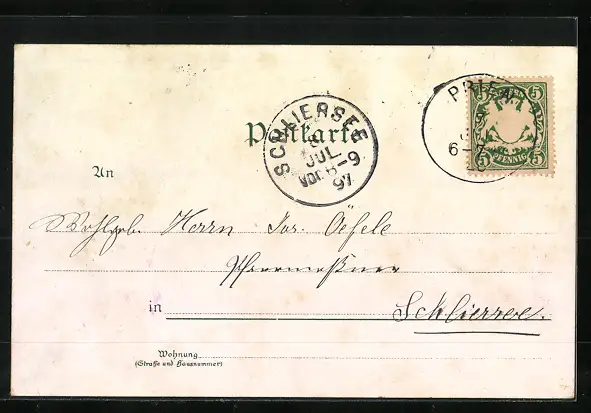 PRIEN
5 BAYERN 5
5 PFENNIG 5
6-7
Postkarte
SCHLIERSEE
8
JUL
VOR 8-9
97
An
Wohlgeb. Herrn Jos. Oefele
in Schliersee.
Wohnung
(Straße und Hausnummer)